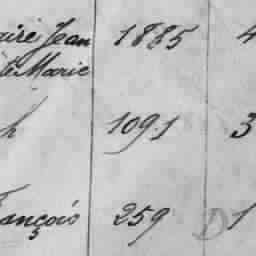 aire Jean 1885 4
le Marie
h 1091 3
François 259 D 1